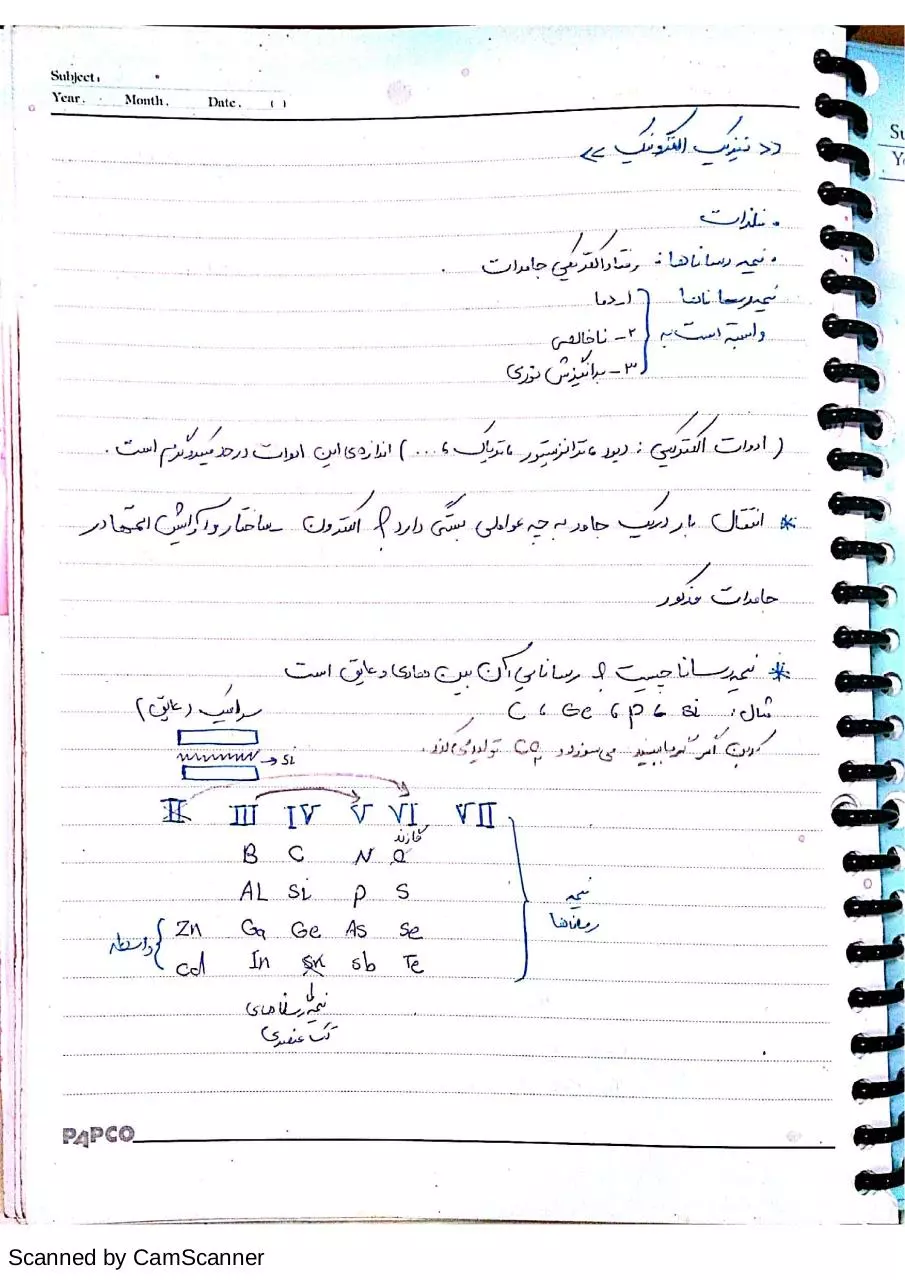 Subject:
Year. Month. Date. ( )
Su
Ye
<< فیزیک الکترونیک >>
• فلزات
• نیمه رساناها: رفتار الکتریکی جامدات
نیمه رسانا ها ۱- دما
وابسته است به ۲- ناخالصی
۳- برانگیزش نوری
( ادوات الکتریکی: دیود، ترانزیستور، تریاک، ... ) اندازه‌ی این ادوات در حد میکرومتر است.
* انتقال بار در یک جامد به چه عواملی بستگی دارد؟ الکترون - ساختار و آرایش اتمها در
جامدات مذکور
* نیمه رسانا چیست؟ رسانایی آن بین هادی و عایق است
مثال: Si ، P ، Ge ، C
سرامیک (عایق)
کربن اگر گرما ببیند می‌سوزد و CO₂ تولید می‌کند.
→ Si
II III IV V VI VII
گازند
B C N O
AL Si P S
Zn Ga Ge As Se
Cd In Sn Sb Te
واسطه
نیمه
رساناها
نیمه رساناهای
تک عنصری
PAPCO
Scanned by CamScanner